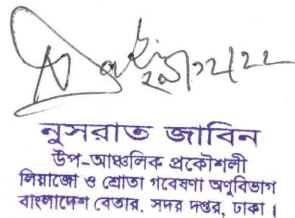 ২০/১২/২২
নুসরাত জাবিন
উপ-আঞ্চলিক প্রকৌশলী
লিয়াজো ও শ্রোতা গবেষণা অণুবিভাগ
বাংলাদেশ বেতার, সদর দপ্তর, ঢাকা।